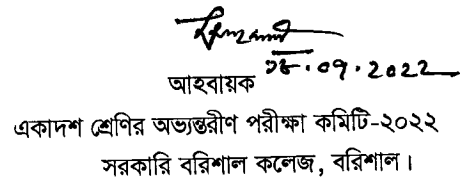 আহবায়ক
একাদশ শ্রেণির অভ্যন্তরীণ পরীক্ষা কমিটি-২০২২
সরকারি বরিশাল কলেজ, বরিশাল।